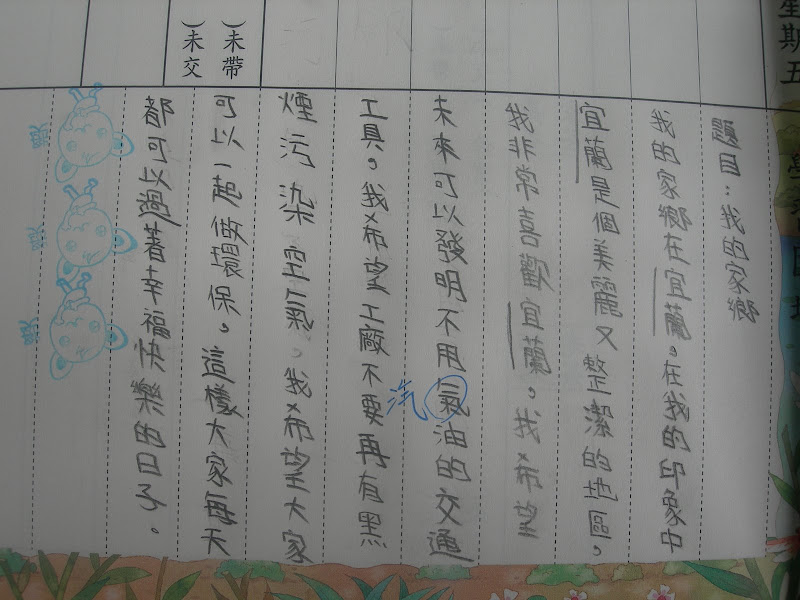 星期五
題目：我的家鄉
我的家鄉在宜蘭。在我的印象中
宜蘭是個美麗又整潔的地區，
我非常喜歡宜蘭。我希望
未來可以發明不用氣油的交通
汽
工具。我希望工廠不要再有黑
煙污染空氣。我希望大家
可以一起做環保。這樣大家每天
都可以過著幸福快樂的日子。
（未帶
（未交